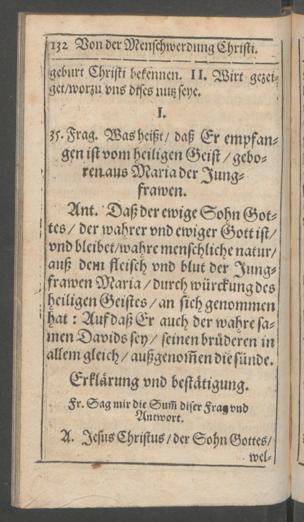 132 Von der Menschwerdung Christi.
geburt Christi bekennen. II. Wirt gezei-
get/worzu vns dises nutz seye.
I.
35. Frag. Was heißt/ daß Er empfan-
gen ist vom heiligen Geist/ gebo-
ren aus Maria der Jung-
frawen.
Ant. Daß der ewige Sohn Got-
tes/ der wahrer vnd ewiger Gott ist/
vnd bleibet/wahre menschliche natur/
auß dem fleisch vnd blut der Jung-
frawen Maria/durch würckung des
heiligen Geistes/ an sich genommen
hat: Auf daß Er auch der wahre sa-
men Davids sey/ seinen brüderen in
allem gleich/ außgenom̃en die sünde.
Erklärung vnd bestätigung.
Fr. Sag mir die Sum̃ diser Frag vnd
Antwort.
A. Jesus Christus/der Sohn Gottes/
wel-